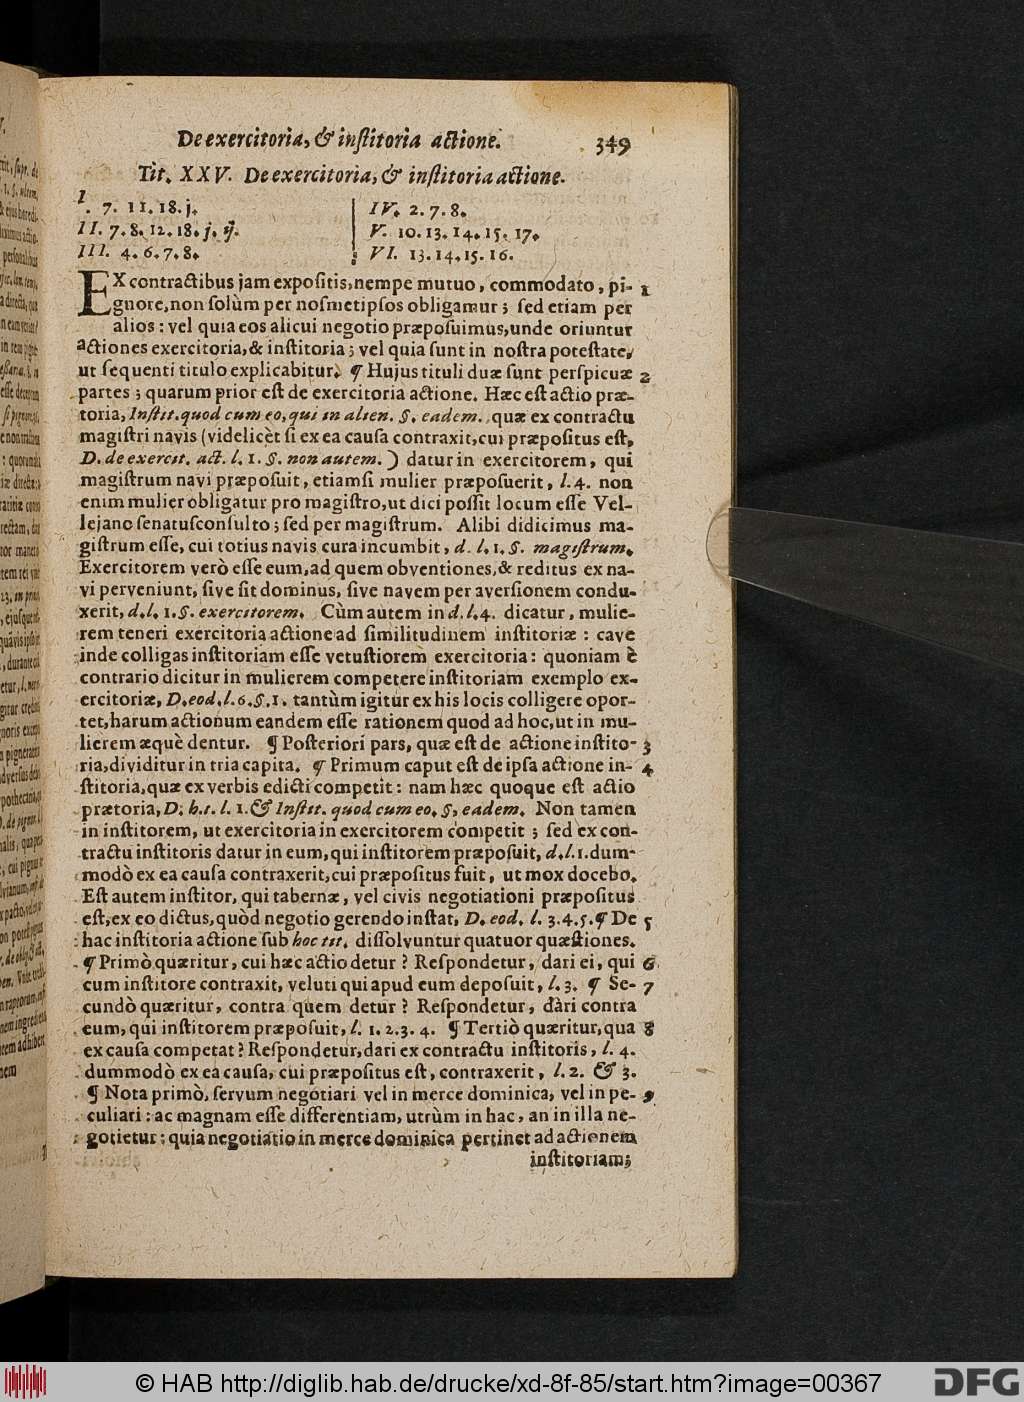 De exercitoria, & institoria actione. 349
Tit. XXV. De exercitoria, & institoria actione.
I. 7. 11. 18. j.
II. 7. 8. 12. 18. j. ij.
III. 4. 6. 7. 8.
IV. 2. 7. 8.
V. 10. 13. 14. 15. 17.
VI. 13. 14. 15. 16.
EX contractibus jam expositis, nempe mutuo, commodato, pi- 1
gnore, non solùm per nosmetipsos obligamur; sed etiam per
alios: vel quia eos alicui negotio præposuimus, unde oriuntur
actiones exercitoria, & institoria; vel quia sunt in nostra potestate,
ut sequenti titulo explicabitur. ¶ Hujus tituli duæ sunt perspicuæ 2
partes; quarum prior est de exercitoria actione. Hæc est actio præ-
toria, Instit. quod cum eo, qui in alien. §. eadem. quæ ex contractu
magistri navis (videlicèt si ex ea causa contraxit, cui præpositus est,
D. de exercit. act. l. 1. §. non autem.) datur in exercitorem, qui
magistrum navi præposuit, etiamsi mulier præposuerit, l. 4. non
enim mulier obligatur pro magistro, ut dici possit locum esse Vel-
lejano senatusconsulto; sed per magistrum. Alibi didicimus ma-
gistrum esse, cui totius navis cura incumbit, d. l. 1. §. magistrum.
Exercitorem verò esse eum, ad quem obventiones, & reditus ex na-
vi perveniunt, sive sit dominus, sive navem per aversionem condu-
xerit, d. l. 1. §. exercitorem. Cùm autem in d. l. 4. dicatur, mulie-
rem teneri exercitoria actione ad similitudinem institoriæ: cave
inde colligas institoriam esse vetustiorem exercitoria: quoniam è
contrario dicitur in mulierem competere institoriam exemplo ex-
ercitoriæ, D. eod. l. 6. §. 1. tantùm igitur ex his locis colligere opor-
tet, harum actionum eandem esse rationem quod ad hoc, ut in mu-
lierem æquè dentur. ¶ Posteriori pars, quæ est de actione instito- 3
ria, dividitur in tria capita. ¶ Primum caput est de ipsa actione in- 4
stitoria, quæ ex verbis edicti competit: nam hæc quoque est actio
prætoria, D. h. t. l. 1. & Instit. quod cum eo. §. eadem. Non tamen
in institorem, ut exercitoria in exercitorem competit; sed ex con-
tractu institoris datur in eum, qui institorem præposuit, d. l. 1. dum-
modò ex ea causa contraxerit, cui præpositus fuit, ut mox docebo.
Est autem institor, qui tabernæ, vel civis negotiationi præpositus
est, ex eo dictus, quòd negotio gerendo instat, D. eod. l. 3. 4. 5. ¶ De 5
hac institoria actione sub hoc tit. dissolvuntur quatuor quæstiones.
¶ Primò quæritur, cui hæc actio detur? Respondetur, dari ei, qui 6
cum institore contraxit, veluti qui apud eum deposuit, l. 3. ¶ Se- 7
cundò quæritur, contra quem detur? Respondetur, dari contra
eum, qui institorem præposuit, l. 1. 2. 3. 4. ¶ Tertiò quæritur, qua 8
ex causa competat? Respondetur, dari ex contractu institoris, l. 4.
dummodò ex ea causa, cui præpositus est, contraxerit, l. 2. & 3.
¶ Nota primò, servum negotiari vel in merce dominica, vel in pe- 9
culiari: ac magnam esse differentiam, utrùm in hac, an in illa ne-
gotietur: quia negotiatio in merce dominica pertinet ad actionem
institoriam;
© HAB http://diglib.hab.de/drucke/xd-8f-85/start.htm?image=00367
DFG